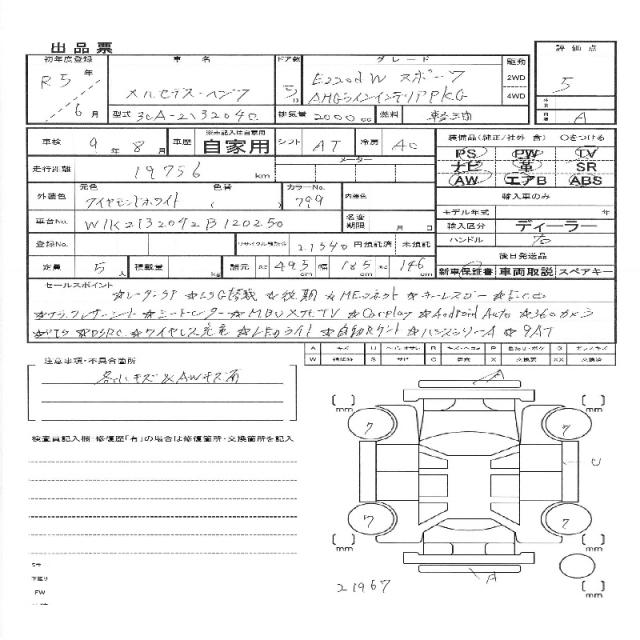 出品票
初年度登録 車名 ドア数 グレード 駆動 評価点
R5年 メルセデス・ベンツ 5 E220d W スポーツ 2WD 5
6月 型式 3CA-213204C 排気量 2000cc 燃料 軽油 AMGラインインテリアPKG 4WD A
車検 9年8月 車歴 ※未記入は自家用 自家用 シフト AT 冷房 AC 装備品(純正/社外 含) ○をつける
走行距離 19756 km メーター PS PW TV
ナビ 革 SR
外装色 元色 ダイヤモンドホワイト 色替 ( カラーNo. 799 内装色 AW エアB ABS
輸入車のみ
車台No. W1K2132042B120250 名変期限 月 日 モデル年式 年
輸入区分 ディーラー
登録No. リサイクル預託金 21540円預託済 未預託 ハンドル 右
後日発送品
定員 5人 積載量 kg 諸元 長さ 493cm 幅 185cm 高さ 146cm 新車保証書 車両取説 スペアキー
セールスポイント
☆レーダーSP ☆ISG搭載 ☆後期 ☆MEコネクト ☆キーレスゴー
☆MBUX ☆TV ☆Carplay ☆Android Auto ☆360カメラ
☆PTS ☆DSRC ☆ワイヤレス充電 ☆LEDライト ☆自動トランク ☆9AT
A キズ U S サビ C 腐食 P X 交換要 XX 交換済
注意事項・不具合箇所
各所キズ&AWキズ有
検査員記入欄 修復歴「有」の場合は修復箇所・交換箇所を記入
A
[ ]mm [ ]mm
7 7
U
7 7
[ ]mm [ ]mm
A
21967
下廻り
FW